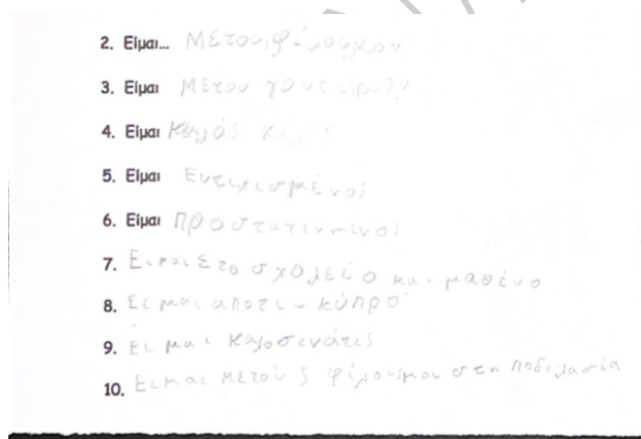 2. Είμαι... Μετουςφίλουςμου
3. Είμαι Μετου γονείςμου
4. Είμαι Καλός
5. Είμαι Ευτιχισμένος
6. Είμαι Προστατευμένος
7. Είμαι Στο σχολείο και μαθένο
8. Είμαι αποτιν κύπρο
9. Είμαι καλοσενάτες
10. Είμαι μετούς φίλουσμου στη ποδιλασία